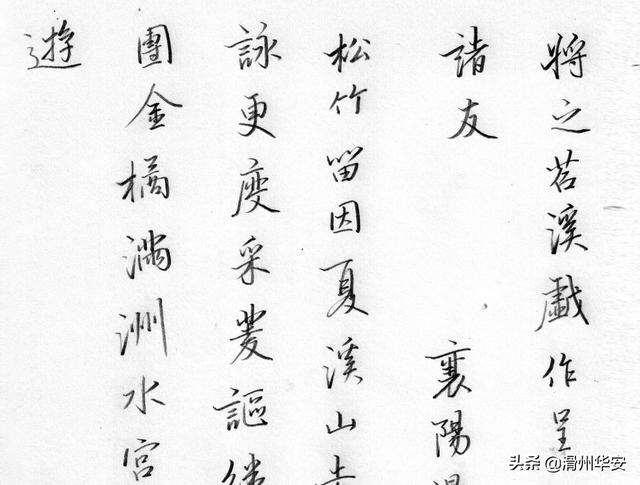 將之苕溪戲作呈
諸友 襄陽
松竹留因夏溪山
詠更度采菱謳
團金橘滿洲水宮
遊
头条 @滑州华安